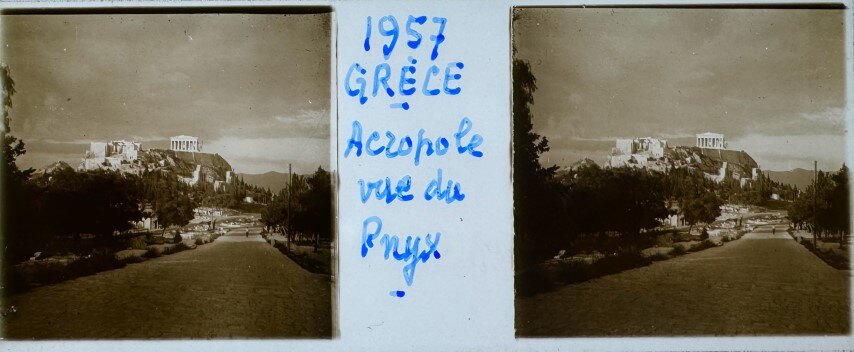 1957
GRÈCE
Acropole
vue du
Pnyx